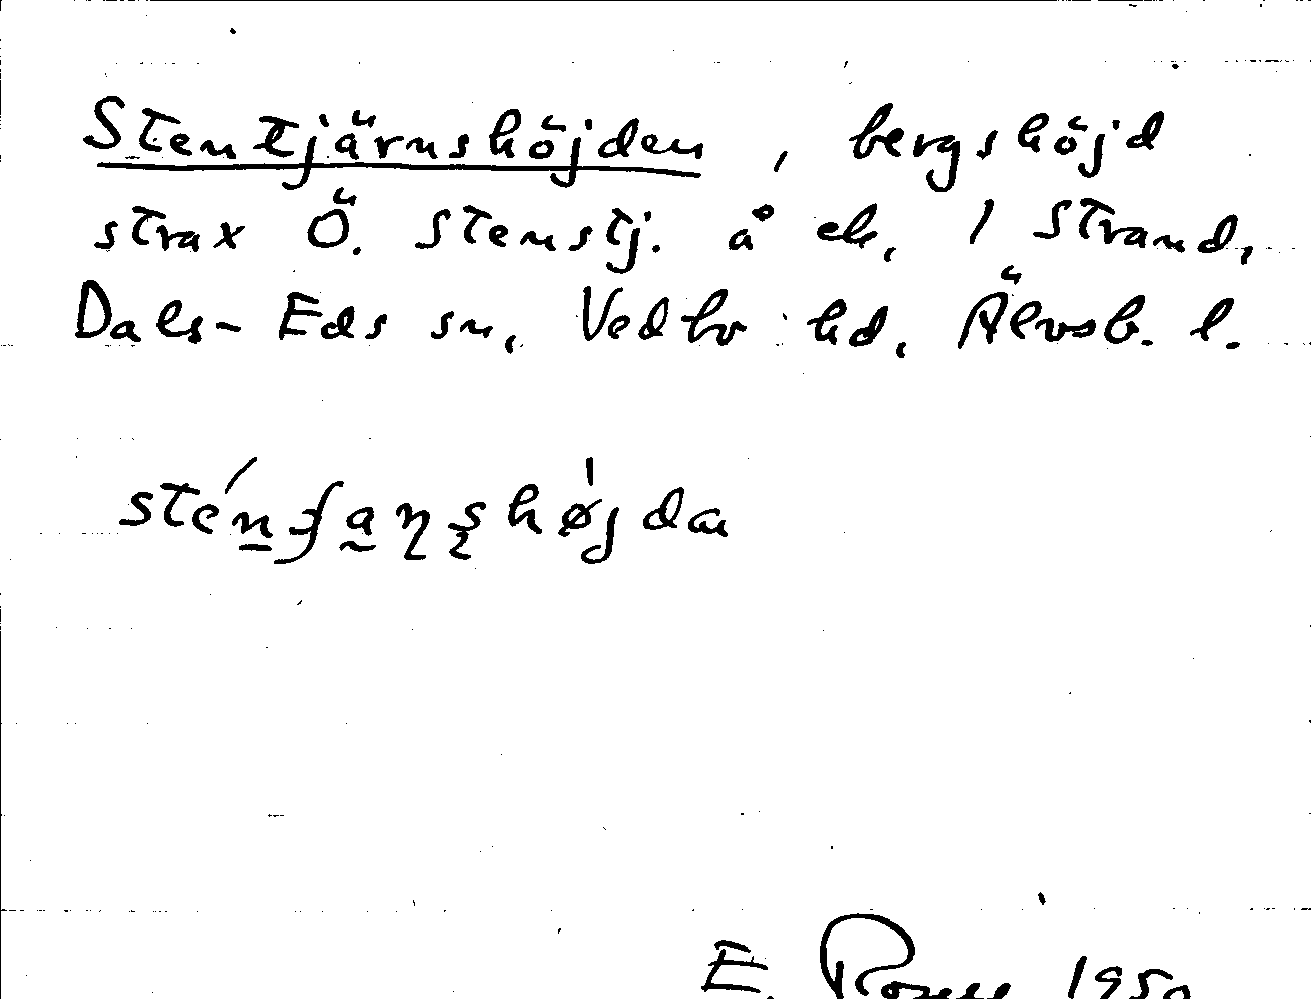 Stentjärnshöjden, bergshöjd
strax Ö. Stenstj. å ek. 1 Strand,
Dals-Eds sn, Vedbo hd, Älvsb. l.
E. 1950